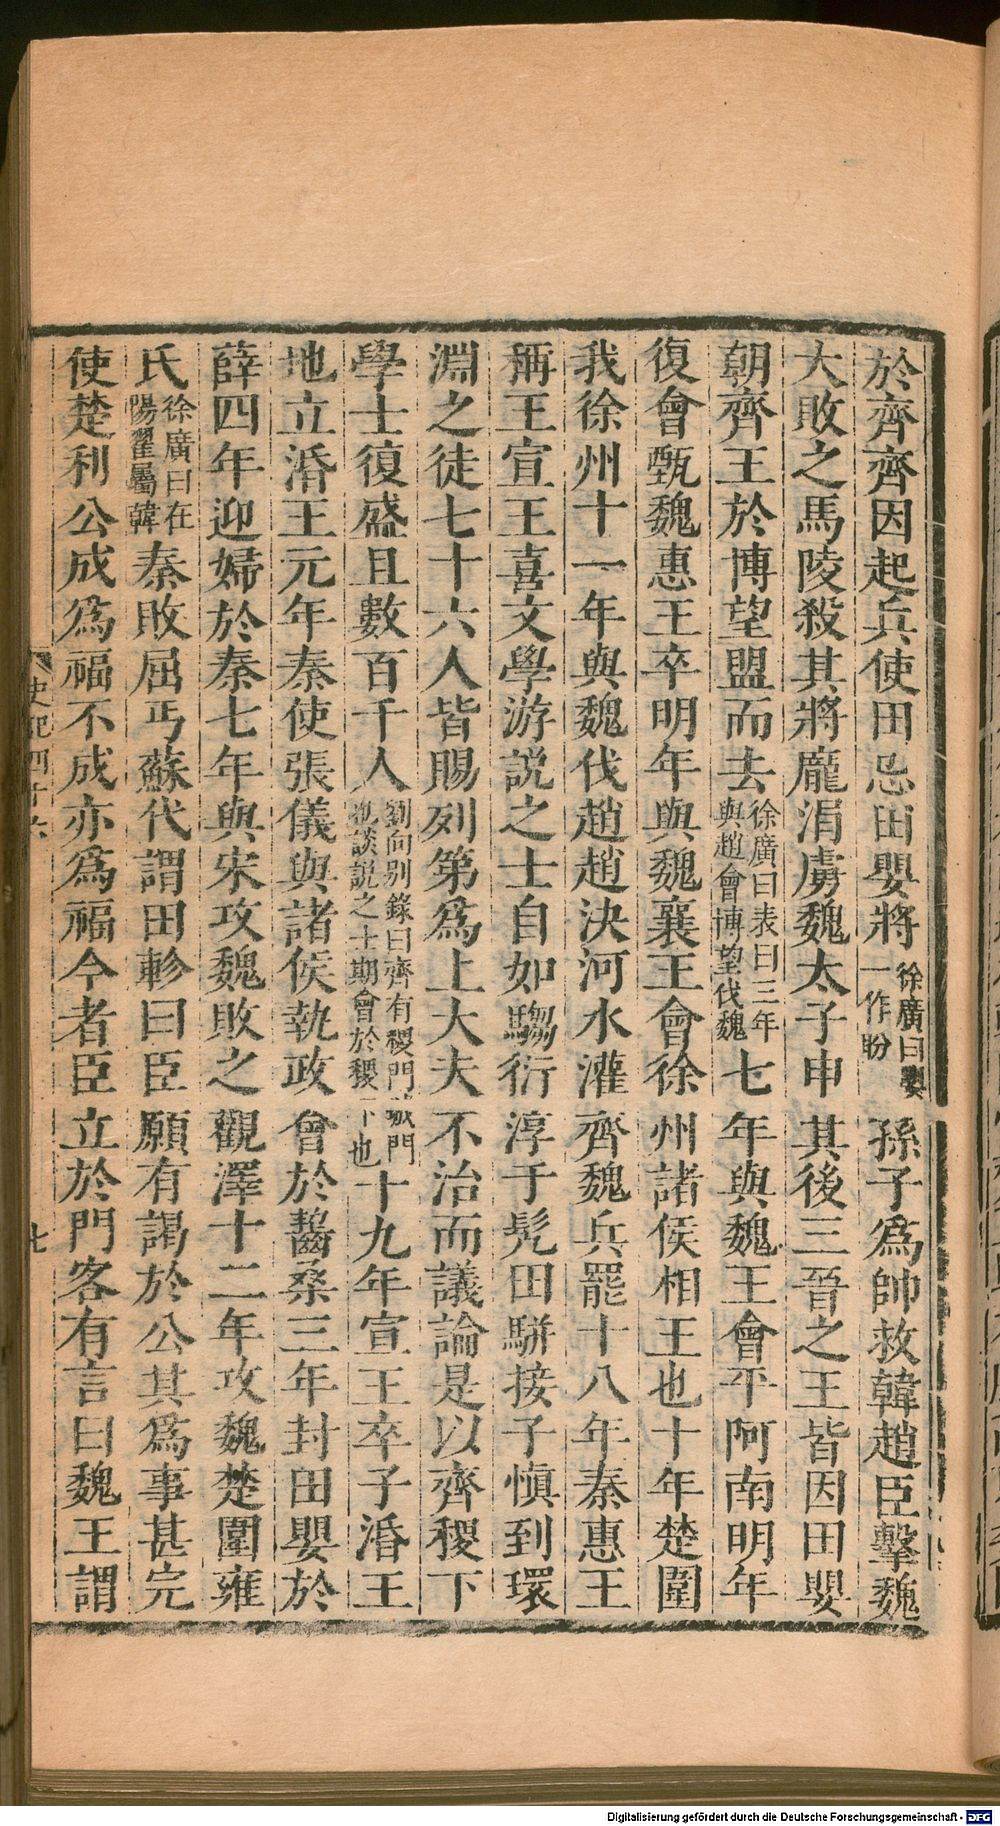 於齊齊因起兵使田忌田嬰將徐廣曰嬰一作盼孫子爲帥救韓趙臣擊魏
大敗之馬陵殺其將龐涓虜魏太子申其後三晉之王皆因田嬰
朝齊王於博望盟而去徐廣曰表曰三年與趙會博望伐魏七年與魏王會平阿南明年
復會甄魏惠王卒明年與魏襄王會徐州諸侯相王也十年楚圍
我徐州十一年與魏伐趙趙決河水灌齊魏兵罷十八年秦惠王
稱王宣王喜文學游説之士自如騶衍淳于髡田駢接子慎到環
淵之徒七十六人皆賜列第爲上大夫不治而議論是以齊稷下
學士復盛且數百千人劉向别錄曰齊有稷門城門也談説之士期會於稷下也十九年宣王卒子湣王
地立湣王元年秦使張儀與諸侯執政會於齧桑三年封田嬰於
薛四年迎婦於秦七年與宋攻魏敗之觀澤十二年攻魏楚圍雍
氏徐廣曰在陽翟屬韓秦敗屈丐蘇代謂田軫曰臣願有謁於公其爲事甚完
使楚利公成爲福不成亦爲福今者臣立於門客有言曰魏王謂
史記四十六
七
Digitalisierung gefördert durch die Deutsche Forschungsgemeinschaft - DFG